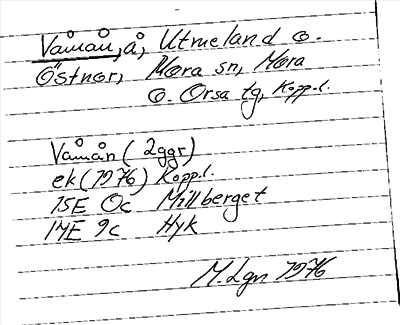 Våmån, å, Utmeland o.
Östnor, Mora sn, Mora
o. Orsa tg, Kopp.l.
Våmån (2ggr)
ek (1976) Kopp.l.
15E 0c Millberget
14E 9c Hyk
M. Lgn 1976